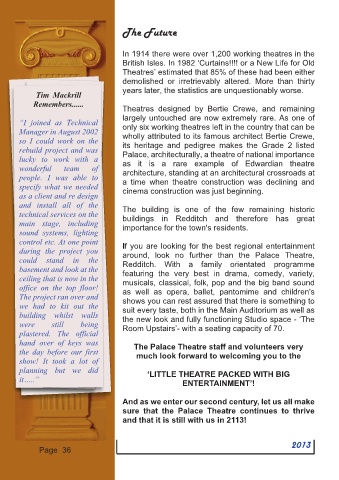 The Future
In 1914 there were over 1,200 working theatres in the
British Isles. In 1982 'Curtains!!!! or a New Life for Old
Theatres' estimated that 85% of these had been either
demolished or irretrievably altered. More than thirty
years later, the statistics are unquestionably worse.
Theatres designed by Bertie Crewe, and remaining
largely untouched are now extremely rare. As one of
only six working theatres left in the country that can be
wholly attributed to its famous architect Bertie Crewe,
its heritage and pedigree makes the Grade 2 listed
Palace, architecturally, a theatre of national importance
as it is a rare example of Edwardian theatre
architecture, standing at an architectural crossroads at
a time when theatre construction was declining and
cinema construction was just beginning.
The building is one of the few remaining historic
buildings in Redditch and therefore has great
importance for the town's residents.
If you are looking for the best regional entertainment
around, look no further than the Palace Theatre,
Redditch. With a family orientated programme
featuring the very best in drama, comedy, variety,
musicals, classical, folk, pop and the big band sound
as well as opera, ballet, pantomime and children's
shows you can rest assured that there is something to
suit every taste, both in the Main Auditorium as well as
the new look and fully functioning Studio space - 'The
Room Upstairs'- with a seating capacity of 70.
The Palace Theatre staff and volunteers very
much look forward to welcoming you to the
'LITTLE THEATRE PACKED WITH BIG
ENTERTAINMENT'!
And as we enter our second century, let us all make
sure that the Palace Theatre continues to thrive
and that it is still with us in 2113!
Tim Mackrill
Remembers......
"I joined as Technical
Manager in August 2002
so I could work on the
rebuild project and was
lucky to work with a
wonderful team of
people. I was able to
specify what we needed
as a client and re design
and install all of the
technical services on the
main stage, including
sound systems, lighting
control etc. At one point
during the project you
could stand in the
basement and look at the
ceiling that is now in the
office on the top floor!
The project ran over and
we had to kit out the
building whilst walls
were still being
plastered. The official
hand over of keys was
the day before our first
show! It took a lot of
planning but we did
it....."
Page 36
2013